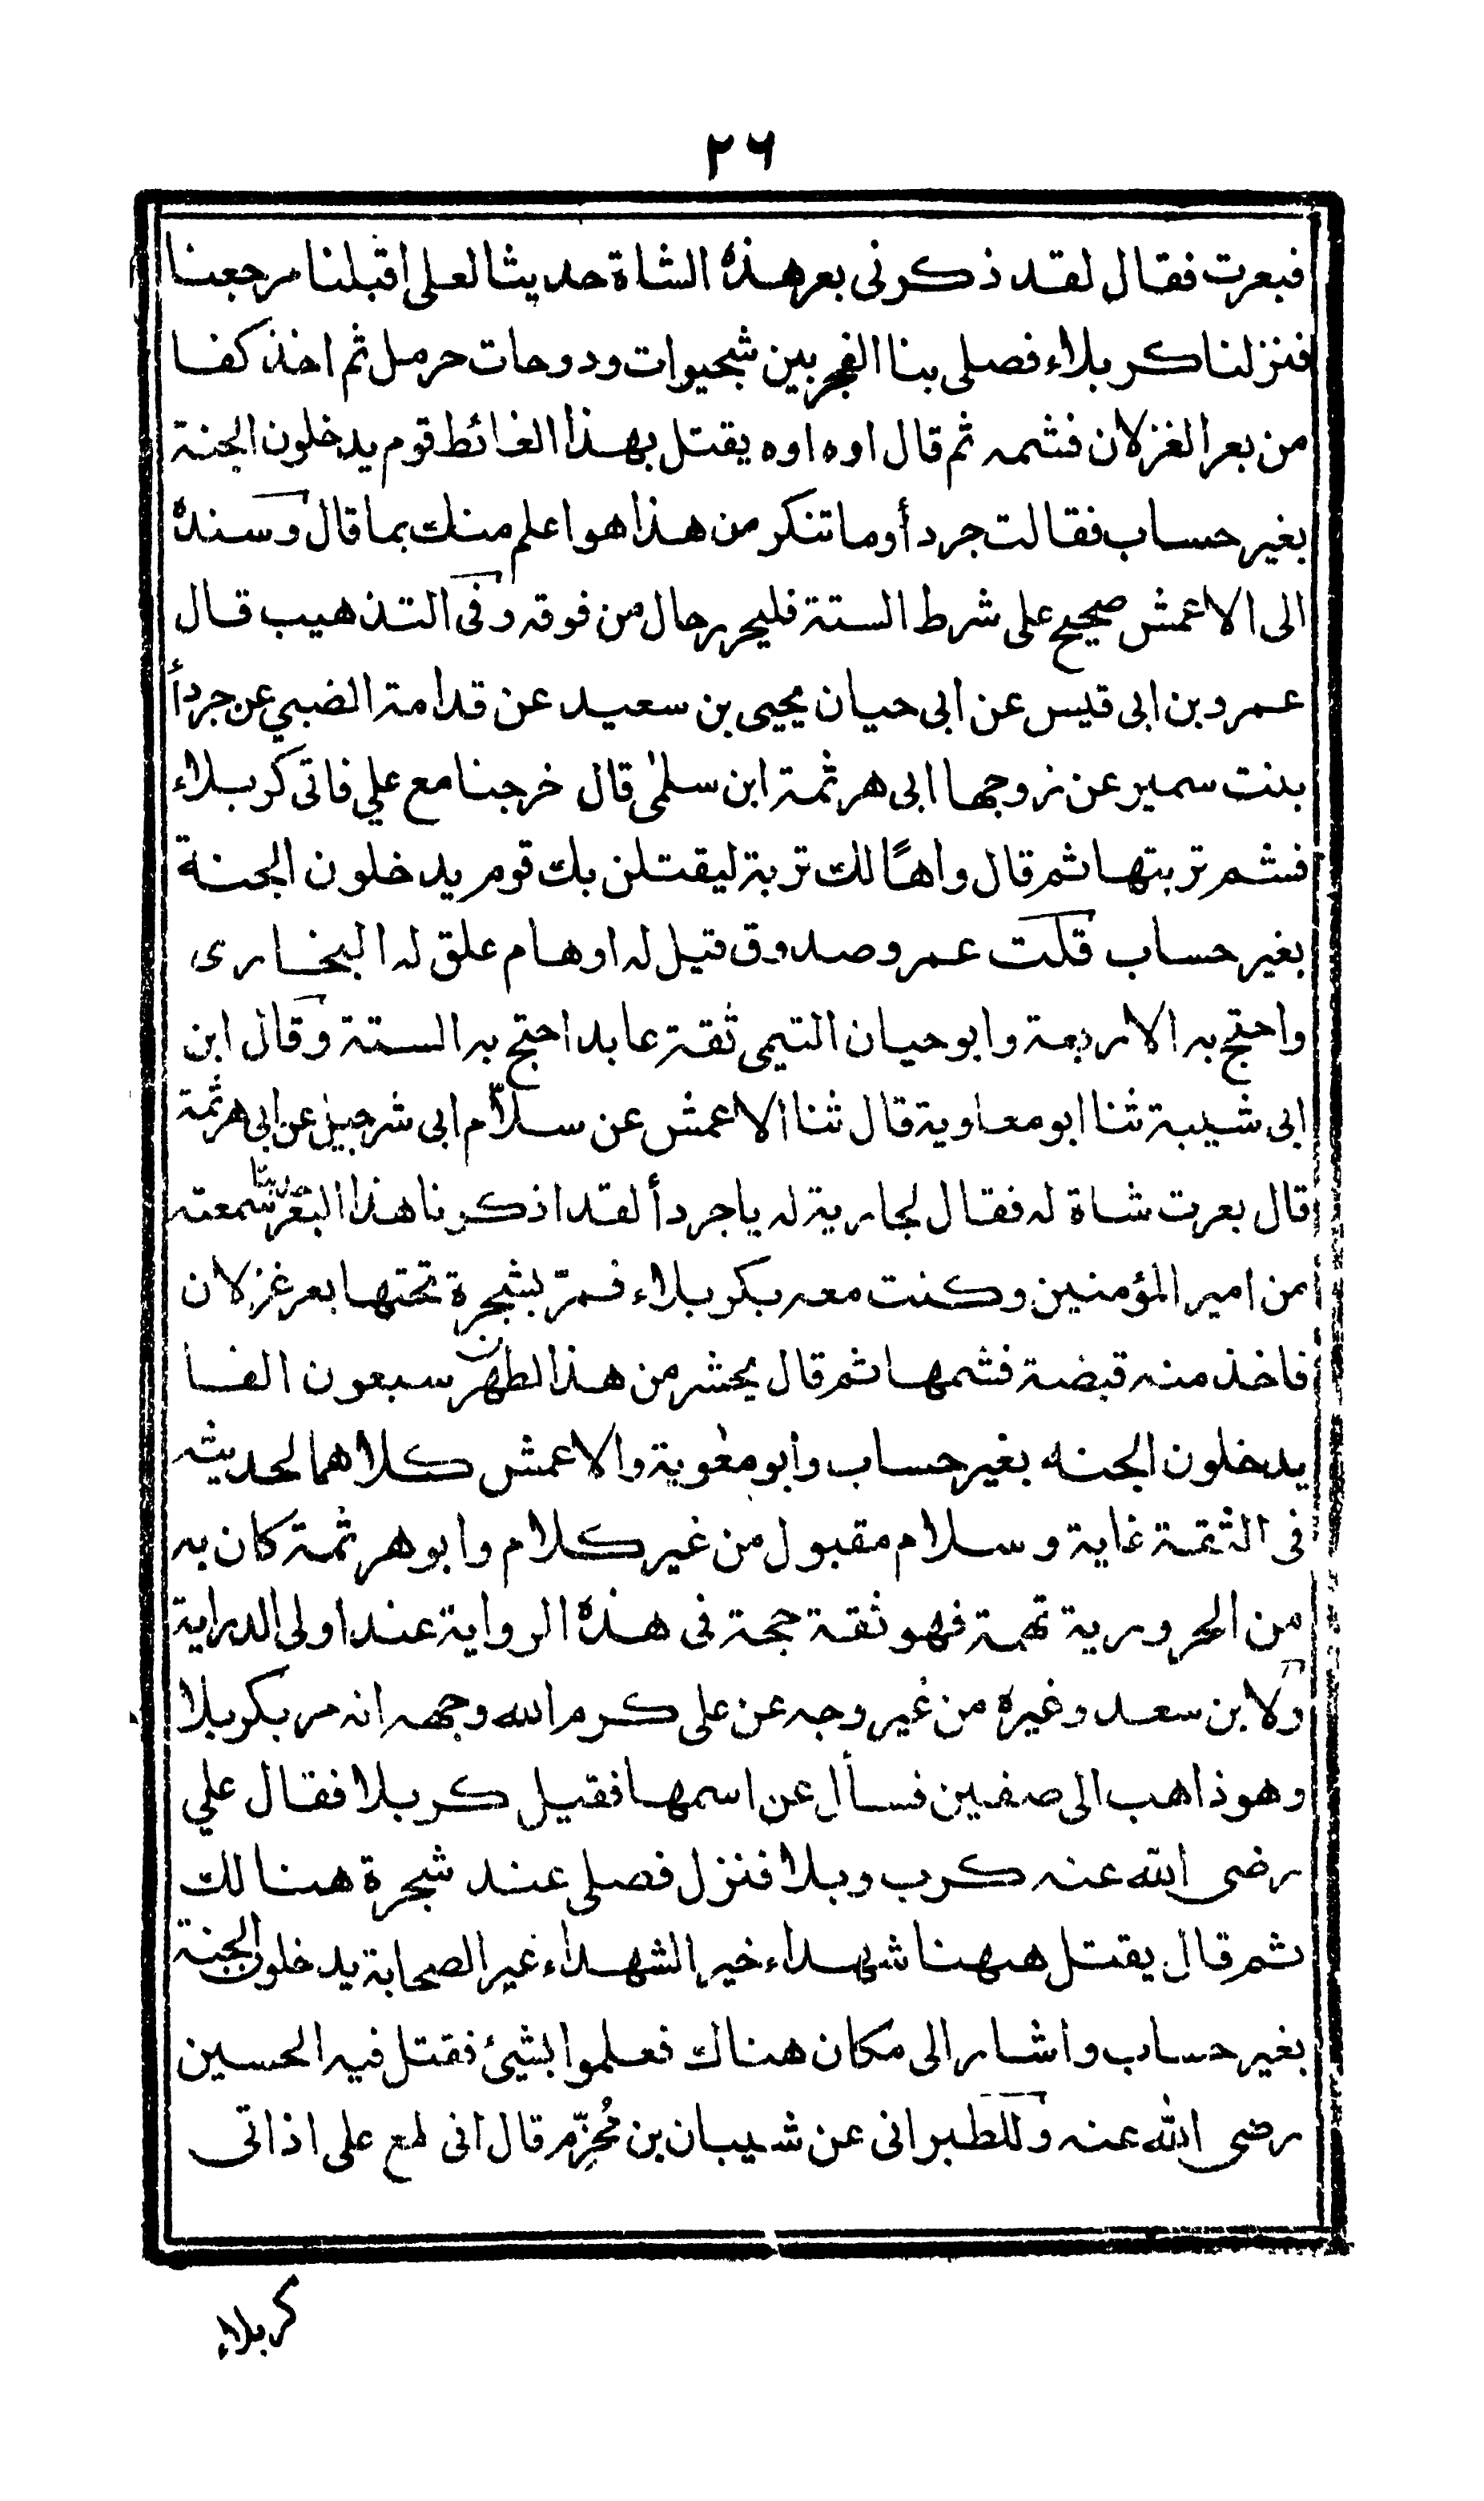 ٢٦
فبعرت فقال لقد ذكرنى بعر هذه الشاة حديثا لعلى اقبلنا مرجعنا
فنزلنا كربلاء فصلى بنا الفجر بين شجيرات ودوحات حرمل ثم اخذ كفا
من بعر الغزلان فشمه ثم قال اوه اوه يقتل بهذا الغائط قوم يدخلون الجنة
بغير حساب فقالت جردأ وما تنكر من هذا هو اعلم منك بما قال وسنده
الى الاعمش صحيح على شرط الستة فليحرر حال من فوقه وفى التذهيب قال
عمرو بن ابى قيس عن ابى حيان يحيى بن سعيد عن قدامة الضبي عن جردأ
بنت سمير عن زوجها ابى هرثمة ابن سلمٰى قال خرجنا مع علي فاتى كربلاء
فشم تربتها ثم قال واهًا لك تربة ليقتلن بك قوم يدخلون الجنة
بغير حساب قلت عمرو صدوق قيل له اوهام علق له البخارى
واحتج به الاربعة وابو حيان التيمى ثقة عابد احتج به الستة وقال ابن
ابى شيبة ثنا ابو معاوية قال ثنا الاعمش عن سلاّم ابى شرحبيل عن ابى هرثمة
قال بعرت شاة له فقال لجارية له يا جردأ لقد اذكرنا هذا البعر حديثا سمعته
من امير المؤمنين وكنت معه بكربلاء فمرّ بشجرة تحتها بعر غزلان
فاخذ منه قبضة فشمها ثم قال يحشر من هذا الظهر سبعون الفا
يدخلون الجنه بغير حساب وابو معٰوية والاعمش كلاهما لحديثه
فى الثقة غاية وسلام مقبول من غير كلام وابو هرثمة كان به
من الحرورية تهمة فهو ثقة حجة فى هذه الرواية عند اولى الدراية
ولابن سعد وغيره من غير وجه عن على كرم الله وجهه انه مر بكربلا
وهو ذاهب الى صفين فسأل عن اسمها فقيل كربلا فقال علي
رضى الله عنه كرب وبلا فنزل فصلى عند شجرة هنالك
ثم قال يقتل ههنا شهداء خير الشهداء غير الصحابة يدخلون الجنة
بغير حساب واشار الى مكان هناك فعلموا بشئ فقتل فيه الحسين
رضى الله عنه وللطبرانى عن شيبان بن مُحَرِّم قال انى لمع على اذ اتى
كربلاء